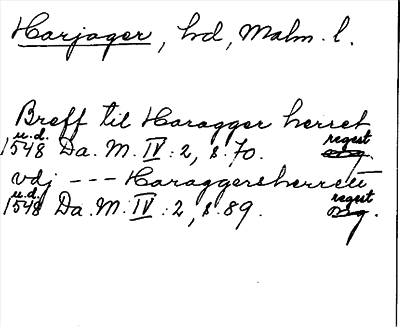 Harjager, hd, Malm. l.
Breff til Haragger herret
u.d.
1548 Da. M. IV: 2, s. 70. regest
vdj --- Haraggersherrett
u.d.
1548 Da. M. IV: 2, s. 89. regest